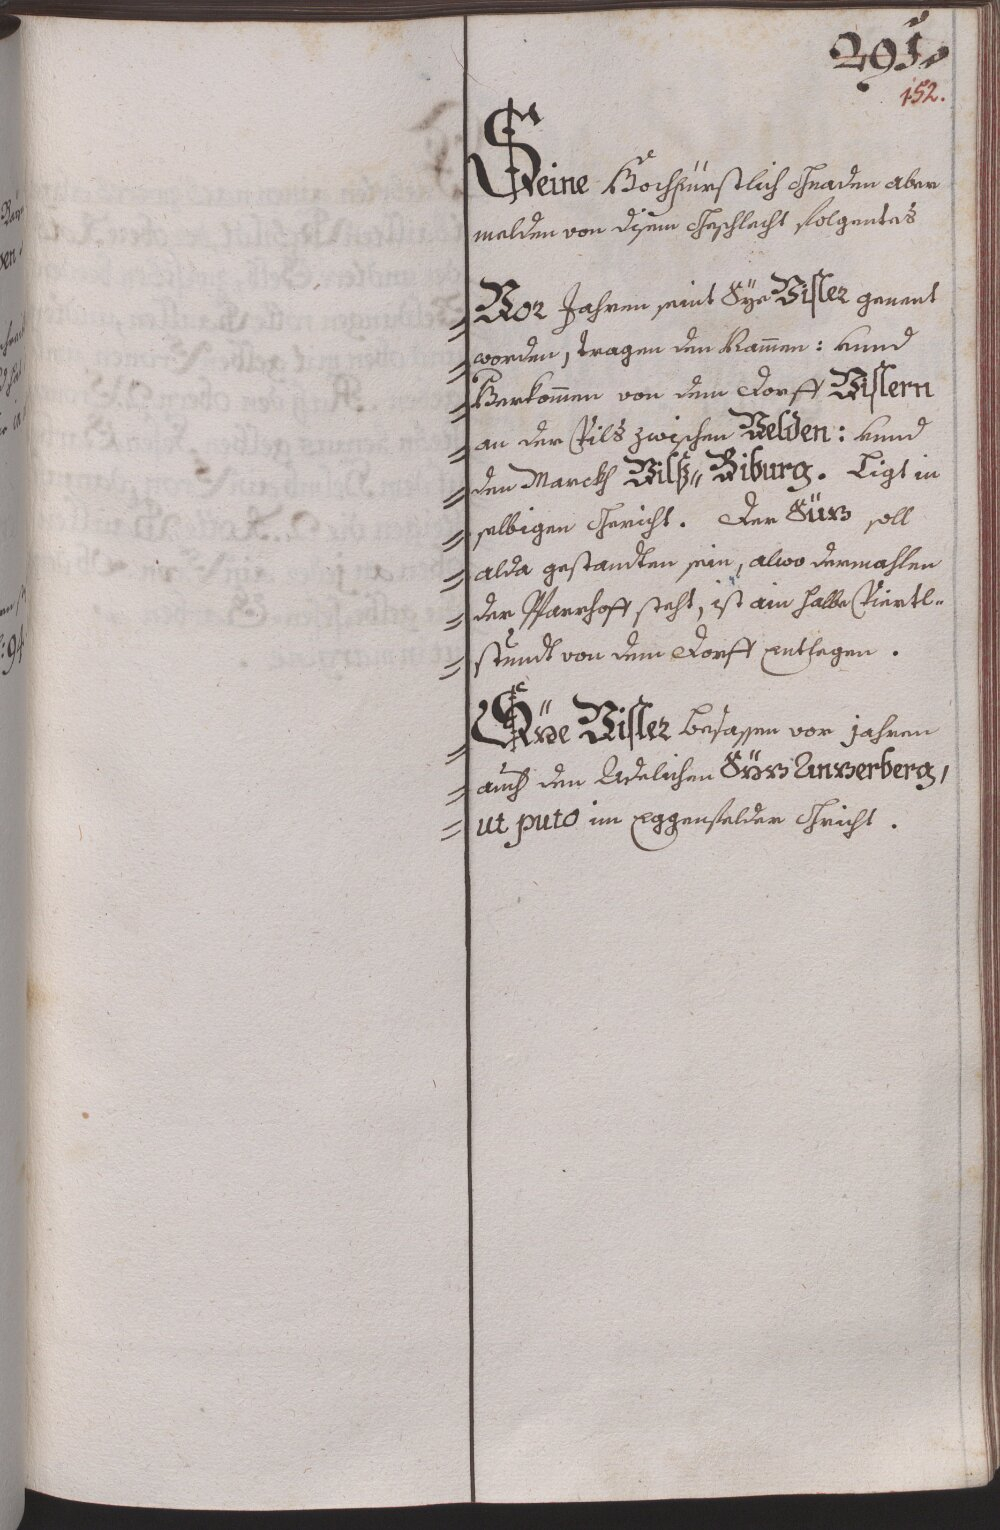 291.
152.
Seine Hochfürstlich Gnaden aber
melden von disem Geschlecht folgentes
Vor Jahren seint Sye Visler genent
worden, tragen den Nammen: vnnd
Herkommen von dem Dorff Vislern
an der Vils zwischen Velden: vnnd
den Marckh Vilß„ Biburg. Ligt in
selbigen Gericht. Der Siz soll
alda gestandten sein, alwo dermahlen
der Pfarrhoff steht, ist ain halbe Viertl-
stundt von dem Dorff entlegen.
Dise Visler besassen vor jahren
auch den Adelichen Siz Anzerberg,
ut puto im Eggenfelder Gricht.